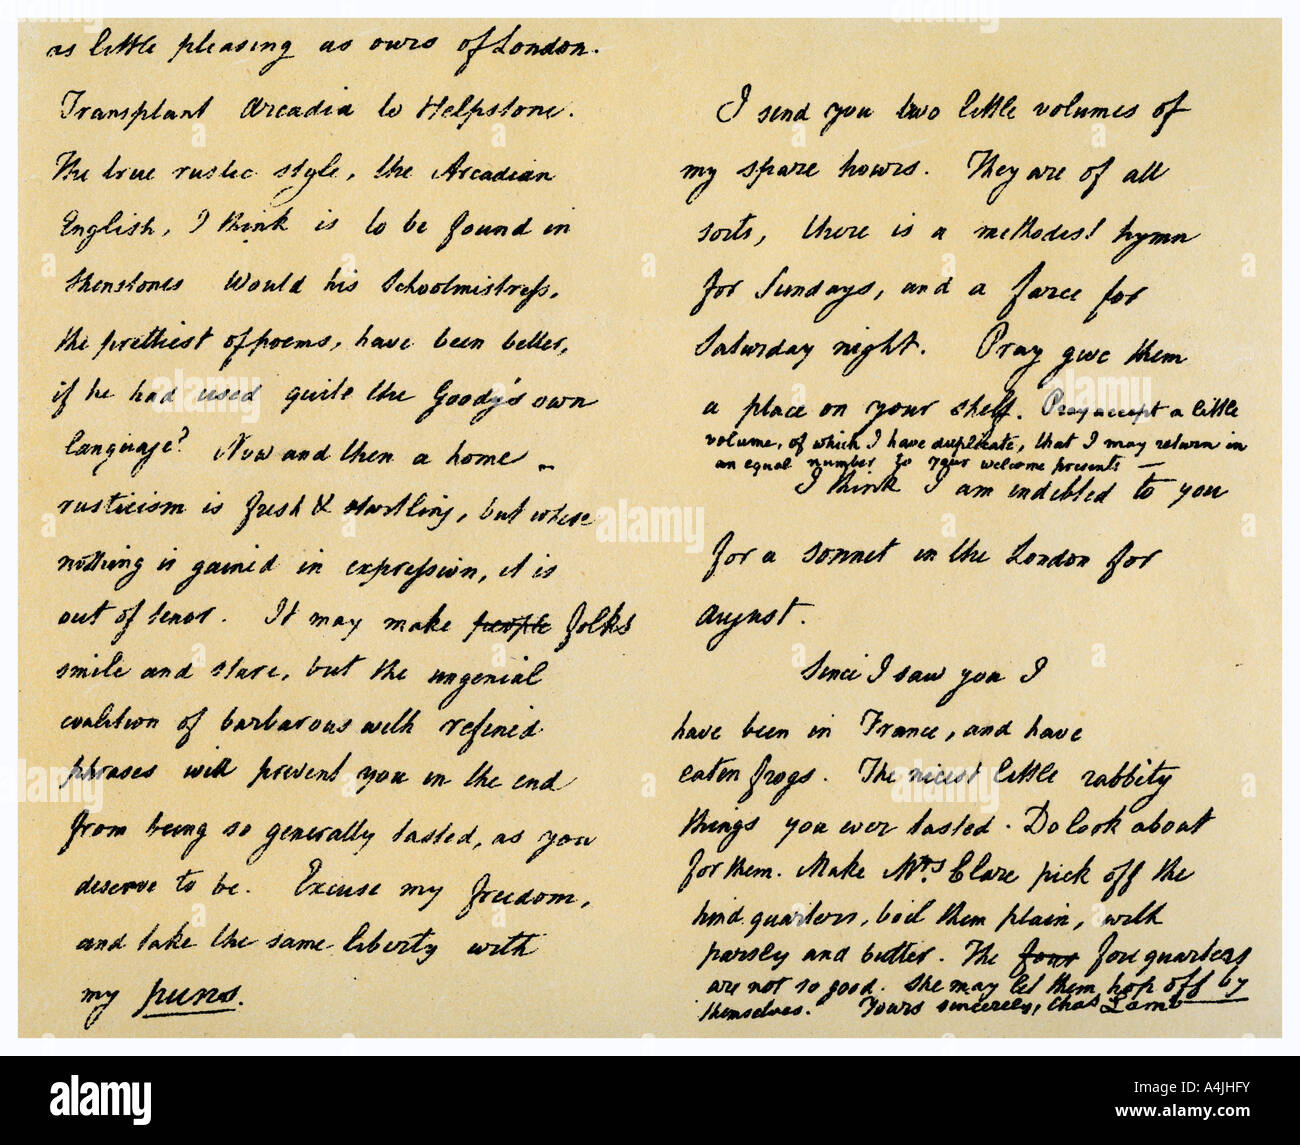 as little pleasing as ours of London.
Transplant Arcadia to Helpstone.
The true rustic style, the Arcadian
English, I think is to be found in
Shenstones Would his Schoolmistress,
the prettiest of poems, have been better,
if he had used quite the Goody's own
language? Now and then a home
rusticism is fresh & startling, but where
nothing is gained in expression, it is
out of tenor. It may make people folks
smile and stare, but the ungenial
coalition of barbarous with refined
phrases will prevent you in the end
from being so generally tasted, as you
deserve to be. Excuse my freedom,
and take the same liberty with
my puns.
I send you two little volumes of
my spare hours. They are of all
sorts, there is a methodist hymn
for Sundays, and a farce for
Saturday night. Pray give them
a place on your shelf. Pray accept a little
volume, of which I have duplicate, that I may return in
an equal number to your welcome presents —
I think I am indebted to you
for a sonnet in the London for
August.
Since I saw you I
have been in France, and have
eaten frogs. The nicest little rabbity
things you ever tasted. Do look about
for them. Make Mrs Clare pick off the
hind quarters, boil them plain, with
parsly and butter. The four fore quarters
are not so good. She may let them hop off by
themselves. Yours sincerely, Chas Lamb
alamy
alamy
alamy
alamy
alamy
alamy
alamy
Image ID: A4JHFY
www.alamy.com